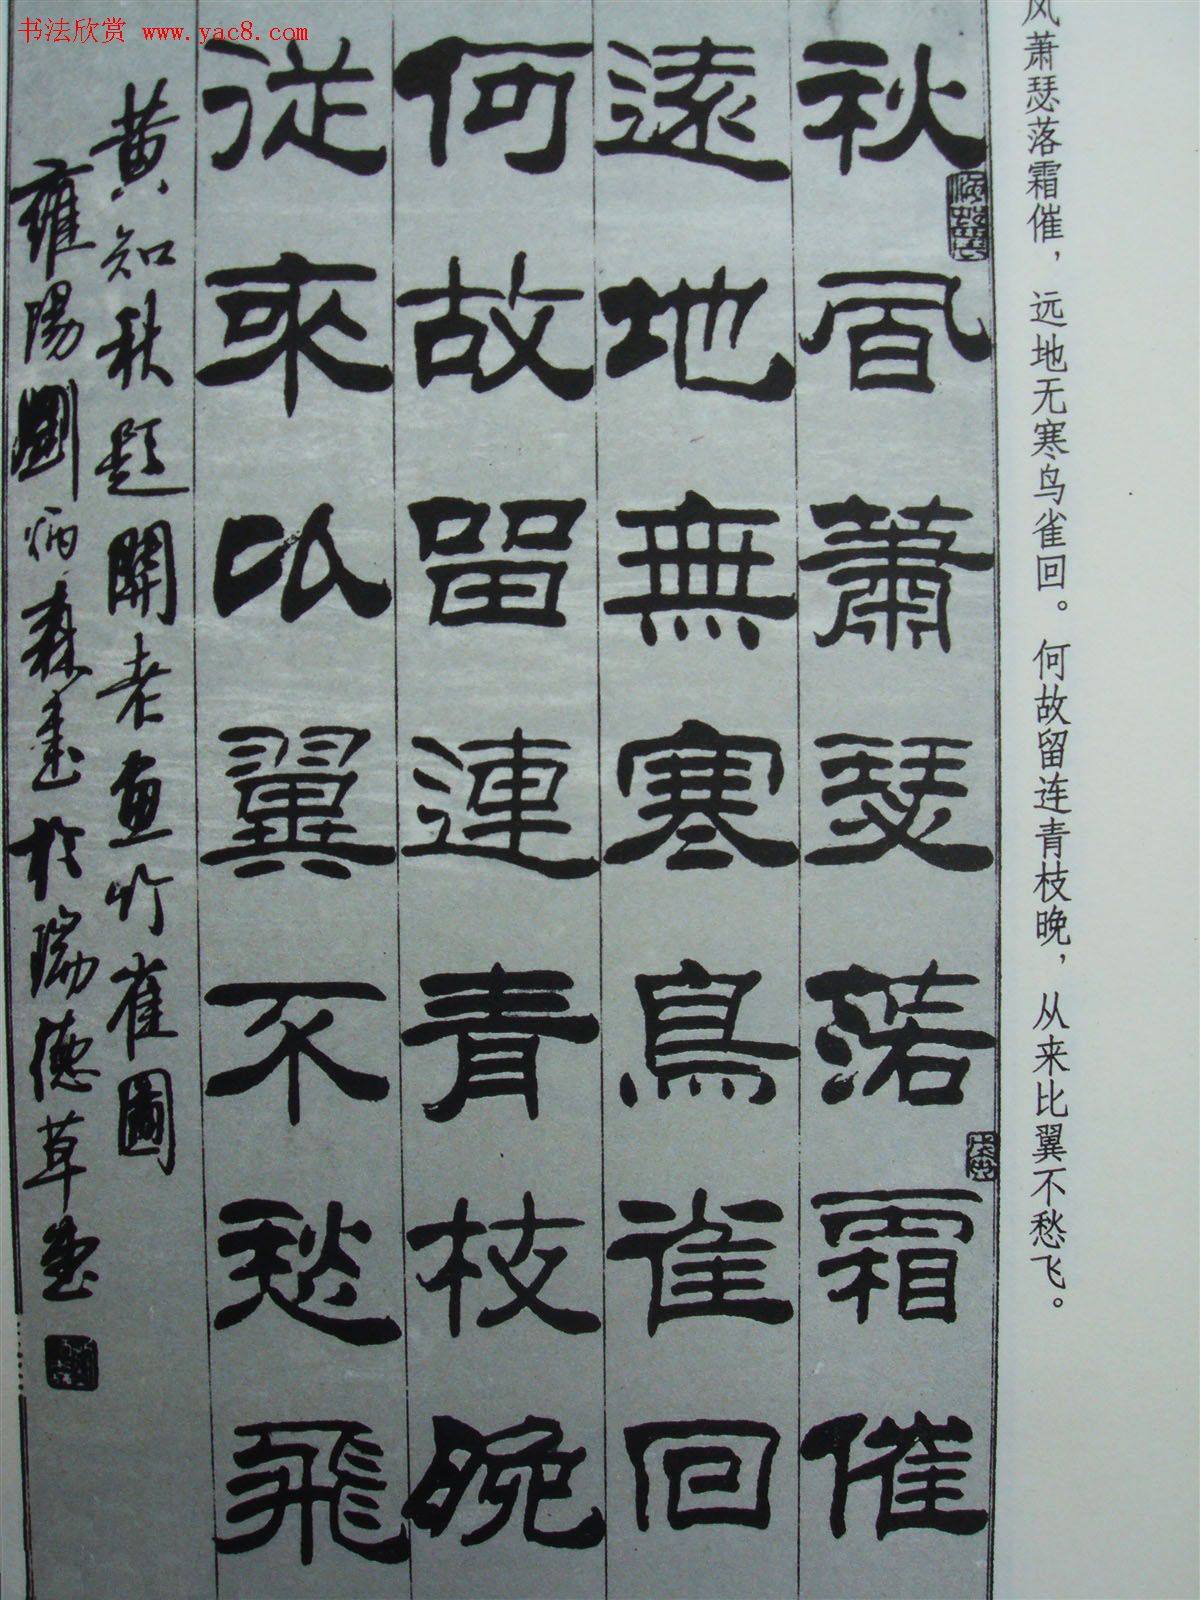 书法欣赏 www.yac8.com
风萧瑟落霜催，远地无寒鸟雀回。何故留连青枝晚，从来比翼不愁飞。
秋風蕭瑟落霜催
遠地無寒鳥雀回
何故留連青枝晚
從來以翼不愁飛
黄知秋題關老畫竹雀圖
雍陽劉炳森書於瑞德草堂